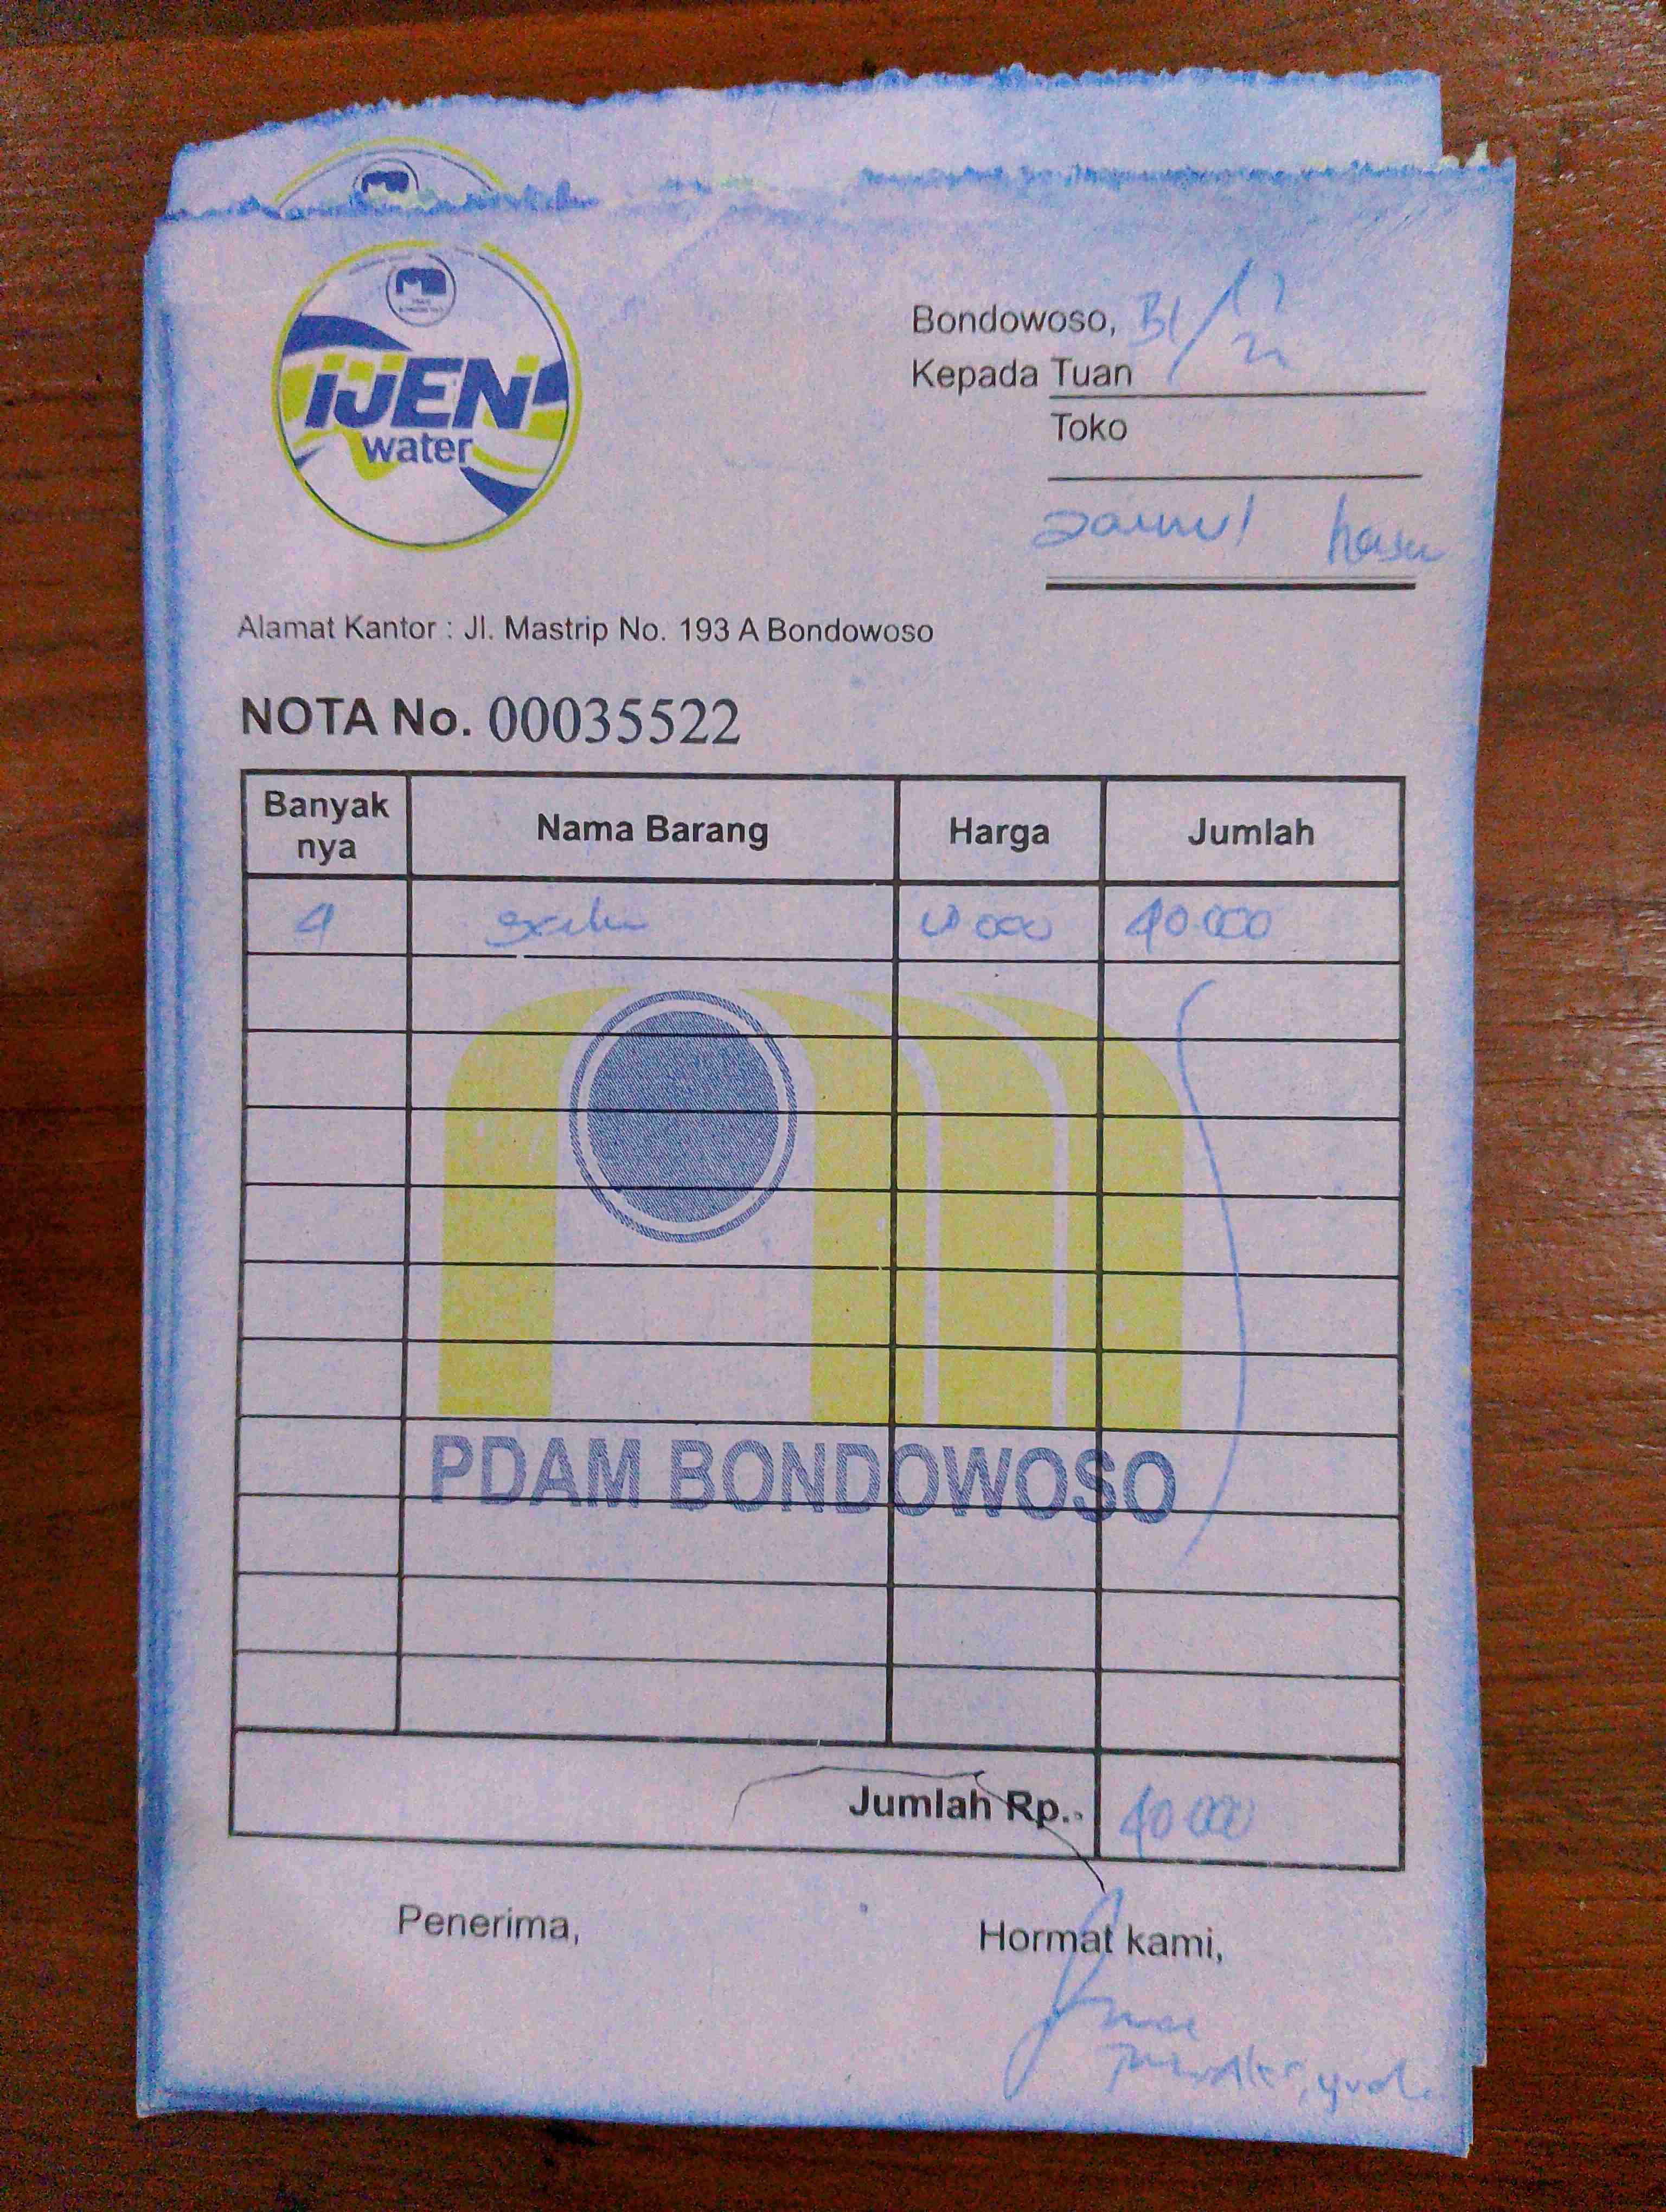 IJEN
water
Bondowoso, 31/12
Kepada Tuan
Toko
Zainul hasan
Alamat Kantor : Jl. Mastrip No. 193 A Bondowoso
NOTA No. 00035522
Banyak nya Nama Barang Harga Jumlah
4 10.000 40.000
PDAM BONDOWOSO
Jumlah Rp.. 40.000
Penerima, Hormat kami,